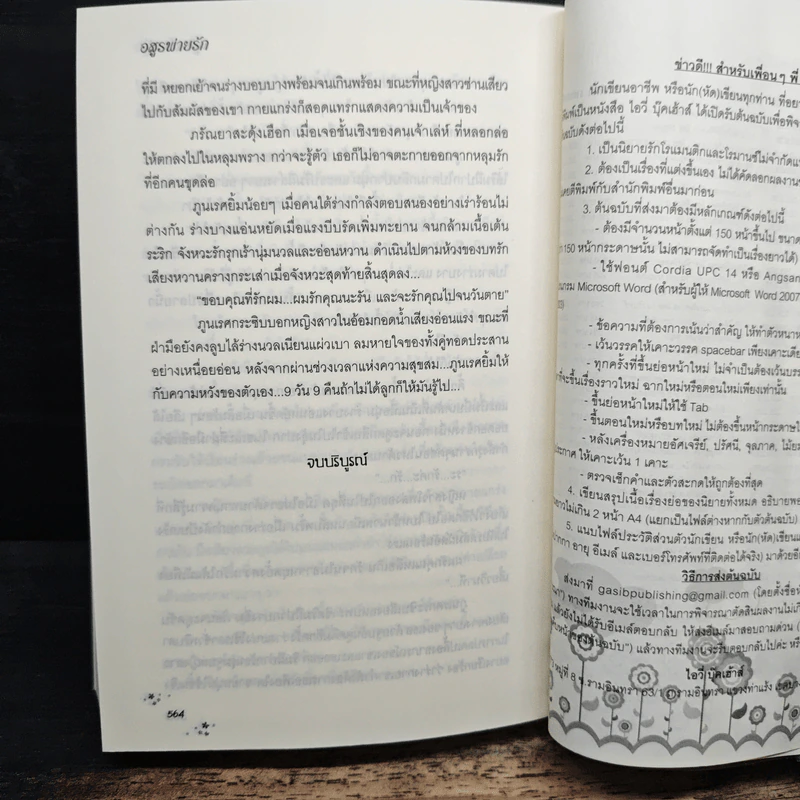 อสูรพ่ายรัก
ที่มี หยอกเย้าจนร่างบอบบางพร้อมจนเกินพร้อม ขณะที่หญิงสาวซ่านเสียว
ไปกับสัมผัสของเขา กายแกร่งก็สอดแทรกแสดงความเป็นเจ้าของ
ภรัณยาสะดุ้งเฮือก เมื่อเจอชั้นเชิงของคนเจ้าเล่ห์ ที่หลอกล่อ
ให้ตกลงไปในหลุมพราง กว่าจะรู้ตัว เธอก็ไม่อาจตะกายออกจากหลุมรัก
ที่อีกคนขุดล่อ
ภูนเรศยิ้มน้อยๆ เมื่อคนใต้ร่างกำลังตอบสนองอย่างเร่าร้อนไม่
ต่างกัน ร่างบางแอ่นหยัดเมื่อแรงบีบรัดเพิ่มทะยาน จนกล้ามเนื้อเต้น
ระริก จังหวะรักรุกเร้านุ่มนวลและอ่อนหวาน ดำเนินไปตามห้วงของบทรัก
เสียงหวานครางกระเส่าเมื่อจังหวะสุดท้ายสิ้นสุดลง...
"ขอบคุณที่รักผม...ผมรักคุณนะรัน และจะรักคุณไปจนวันตาย"
ภูนเรศกระซิบบอกหญิงสาวในอ้อมกอดน้ำเสียงอ่อนแรง ขณะที่
ฝ่ามือยังคงลูบไล้ร่างนวลเนียนแผ่วเบา ลมหายใจของทั้งคู่ทอดประสาน
อย่างเหนื่อยอ่อน หลังจากผ่านช่วงเวลาแห่งความสุขสม...ภูนเรศยิ้มให้
กับความหวังของตัวเอง...9 วัน 9 คืนถ้าไม่ได้ลูกก็ให้มันรู้ไป...
จบบริบูรณ์
564
ข่าวดี!!! สำหรับเพื่อนๆ พี่
นักเขียนอาชีพ หรือนัก(หัด)เขียนทุกท่าน ที่อยา
พิมพ์เป็นหนังสือ ไอวี่ บุ๊คเฮ้าส์ ได้เปิดรับต้นฉบับเพื่อพิจ
ฉบับดังต่อไปนี้
1. เป็นนิยายรักโรแมนติกและโรมานซ์ไม่จำกัดแน
2. ต้องเป็นเรื่องที่แต่งขึ้นเอง ไม่ได้คัดลอกผลงาน
เคยตีพิมพ์กับสำนักพิมพ์อื่นมาก่อน
3. ต้นฉบับที่ส่งมาต้องมีหลักเกณฑ์ดังต่อไปนี้
- ต้องมีจำนวนหน้าตั้งแต่ 150 หน้าขึ้นไป ขนาด
150 หน้ากระดาษนั้น ไม่สามารถจัดทำเป็นเรื่องยาวได้)
- ใช้ฟอนต์ Cordia UPC 14 หรือ Angsan
แกรม Microsoft Word (สำหรับผู้ใช้ Microsoft Word 2007
- ข้อความที่ต้องการเน้นว่าสำคัญ ให้ทำตัวหนาห
- เว้นวรรคให้เคาะวรรค spacebar เพียงเคาะเดีย
- ทุกครั้งที่ขึ้นย่อหน้าใหม่ ไม่จำเป็นต้องเว้นบรร
ที่จะขึ้นเรื่องราวใหม่ ฉากใหม่หรือตอนใหม่เพียงเท่านั้น
- ขึ้นย่อหน้าใหม่ให้ใช้ Tab
- ขึ้นตอนใหม่หรือบทใหม่ ไม่ต้องขึ้นหน้ากระดาษใ
- หลังเครื่องหมายอัศเจรีย์, ปรัศนี, จุลภาค, ไม้ยม
ให้เคาะเว้น 1 เคาะ
- ตรวจเช็กคำและตัวสะกดให้ถูกต้องที่สุด
4. เขียนสรุปเนื้อเรื่องย่อของนิยายทั้งหมด อธิบายพอ
ยาวไม่เกิน 2 หน้า A4 (แยกเป็นไฟล์ต่างหากกับตัวต้นฉบับ)
5. แนบไฟล์ประวัติส่วนตัวนักเขียน หรือนัก(หัด)เขียนแ
อายุ อีเมล์ และเบอร์โทรศัพท์ที่ติดต่อได้จริง) มาด้วยอีก
วิธีการส่งต้นฉบับ
ส่งมาที่ gasibpublishing@gmail.com (โดยตั้งชื่อห
ทางทีมงานจะใช้เวลาในการพิจารณาตัดสินผลงานไม่เกิน
แล้วยังไม่ได้รับอีเมล์ตอบกลับ ให้ส่งอีเมล์มาสอบถามด่วน (
ต้นฉบับ") แล้วทางทีมงานจะรีบตอบกลับไปค่ะ หรือ
ไอวี่ บุ๊คเฮ้าส์
หมู่ที่ 8 ซ.รามอินทรา 63/1 ถ.รามอินทรา แขวงท่าแร้ง